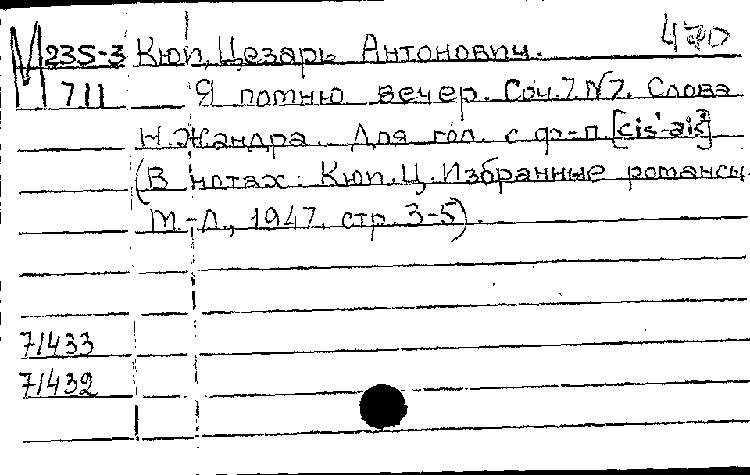 М 235-3 Кюи, Цезарь Антонович. 470
711 Я помню вечер. Соч.7.№7. Слова
Н. Жандра. Для гол. с ф-п. [cis¹-ais²]
(В нотах: Кюи.Ц. Избранные романсы.
М.-Л., 1947. стр. 3-5).
71433
71432